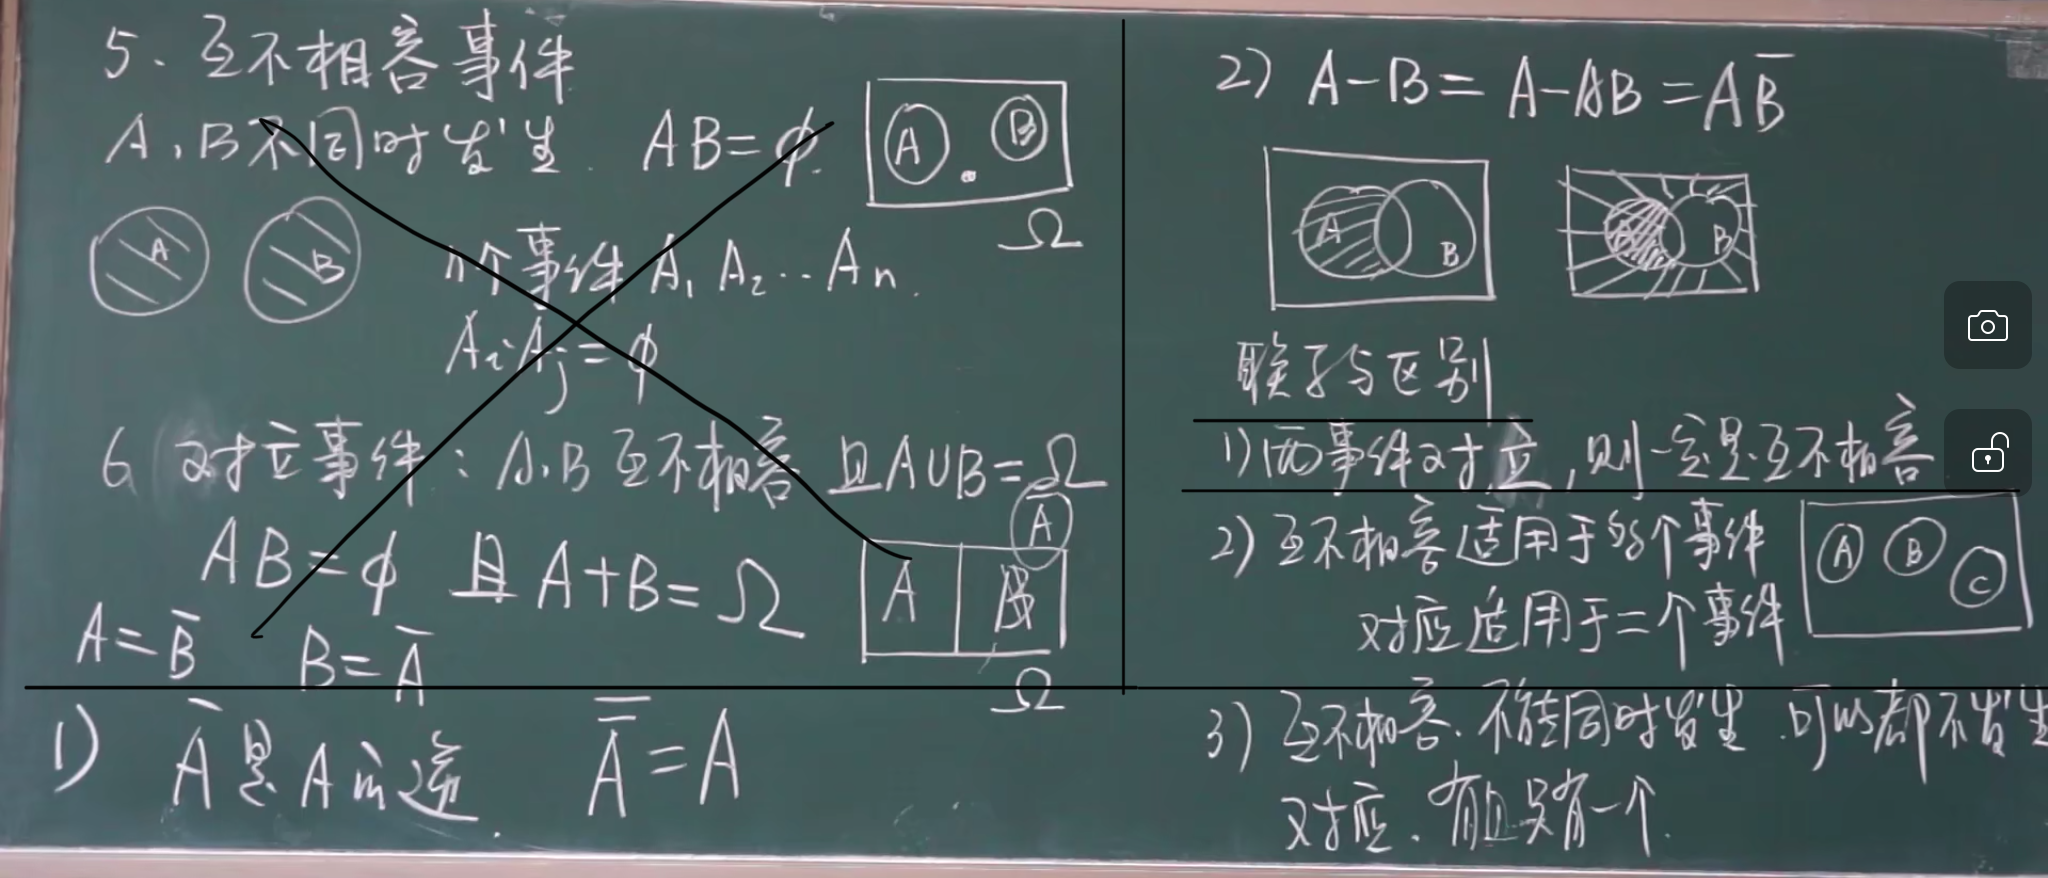 5、互不相容事件
A,B不同时发生. AB=ϕ.
A B
Ω
A
B
n个事件 A₁ A₂ ⋯ Aₙ.
AᵢAⱼ=ϕ
6 对立事件:A.B互不相容 且A∪B=Ω
AB=ϕ 且 A+B=Ω
A̅
A
B
Ω
A=B̅ B=A̅
1) A̅是A的逆. A̿=A
2) A-B=A-AB=AB̅
A B
A B
联系与区别
1)两事件对立,则一定是互不相容
2)互不相容适用于多个事件
对应适用于二个事件
A B C
3)互不相容.不能同时发生.可以都不发生
对应.有且只有一个.